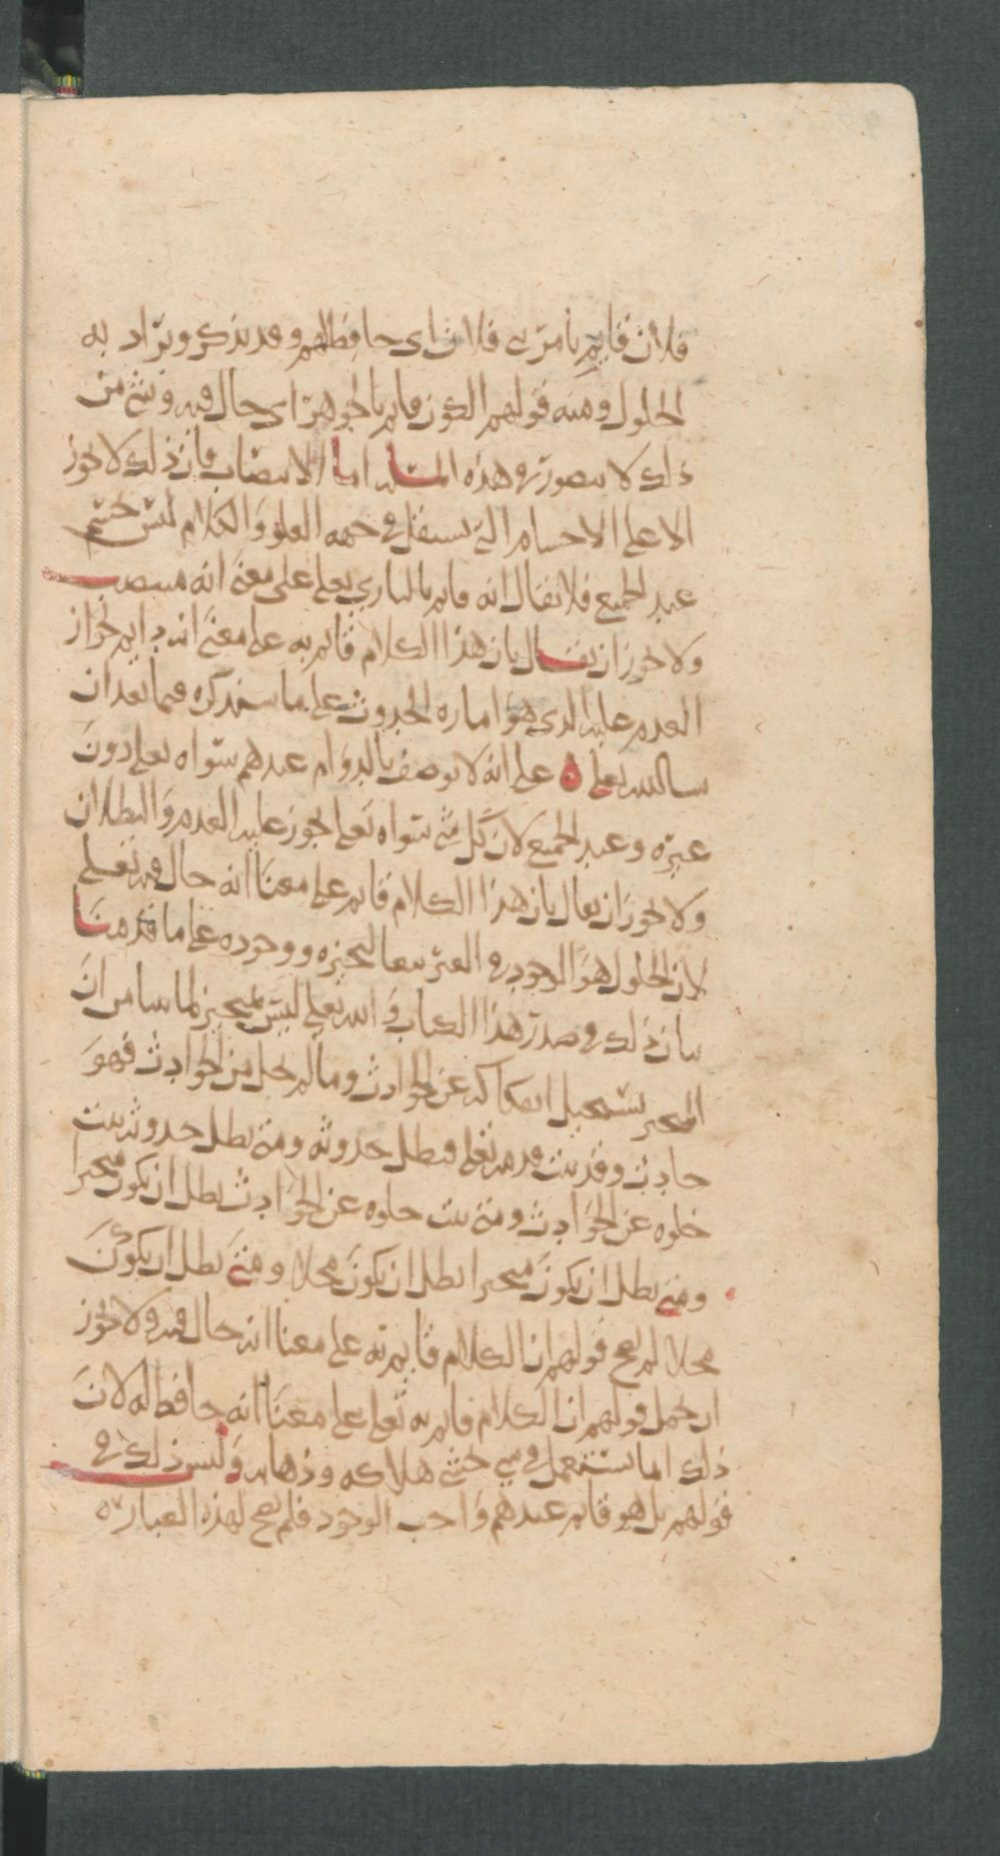 فلان قايم بامر بني فلان اي حافظ لهم وقد يذكر ويراد به
الحلول ومنه قولهم الكون قايم بالجوهر اي حال فيه وشي من
ذلك لا يتصور في هذه المسلة اما الانتصاب فان ذلك لا يجوز
الا على الاجسام التي يستقل في جهه العلو والكلام ليس بجسم
عند الجميع فلا يقال انه قايم بالباري تعلى على معنى انه منتصب
ولا يجوز ان يقال بان هذا الكلام قايم به على معنى انه دايم لجواز
العدم عليه الذي هو اماره الحدوث على ما سنذكره فيما بعد ان
شا الله تعلى ه على انه لا يوصف بالدوام عندهم سواه تعلى دون
غيره وعند الجميع لان كل شي سواه تعلى يجوز عليه العدم والبطلان
ولا يجوز ان يقال بان هذا الكلام قايم على معنا انه حال فيه تعلى
لان الحلول هو الوجود في الغير تبعا لتحيزه ووجوده على ما قدمنا
بيان ذلك في صدر هذا الكتاب والله تعلى ليس بمتحيز لما بينا من ان
المتحيز يستحيل انفكاكه عن الحوادث وما لم يخل من الحوادث فهو
حادث وقد ثبت قدمه تعلى فبطل حدوثه ومتى بطل حدوثه ثبت
خلوه عن الحوادث ومتى ثبت خلوه عن الحوادث بطل ان يكون متحيزا
ومتى بطل ان يكون متحيزا بطل ان يكون محلا ومتى بطل ان يكون
محلا لم يصح قولهم ان الكلام قايم به على معنا انه حال فيه ولا يجوز
ان يحمل قولهم ان الكلام قايم به تعلى على معنا انه حافظ له لان
ذلك انما يستعمل في شي خشي هلاكه وذهابه وليس ذلك في
قولهم بل هو قايم عندهم واجب الوجود فلم يصح لهذه العباره